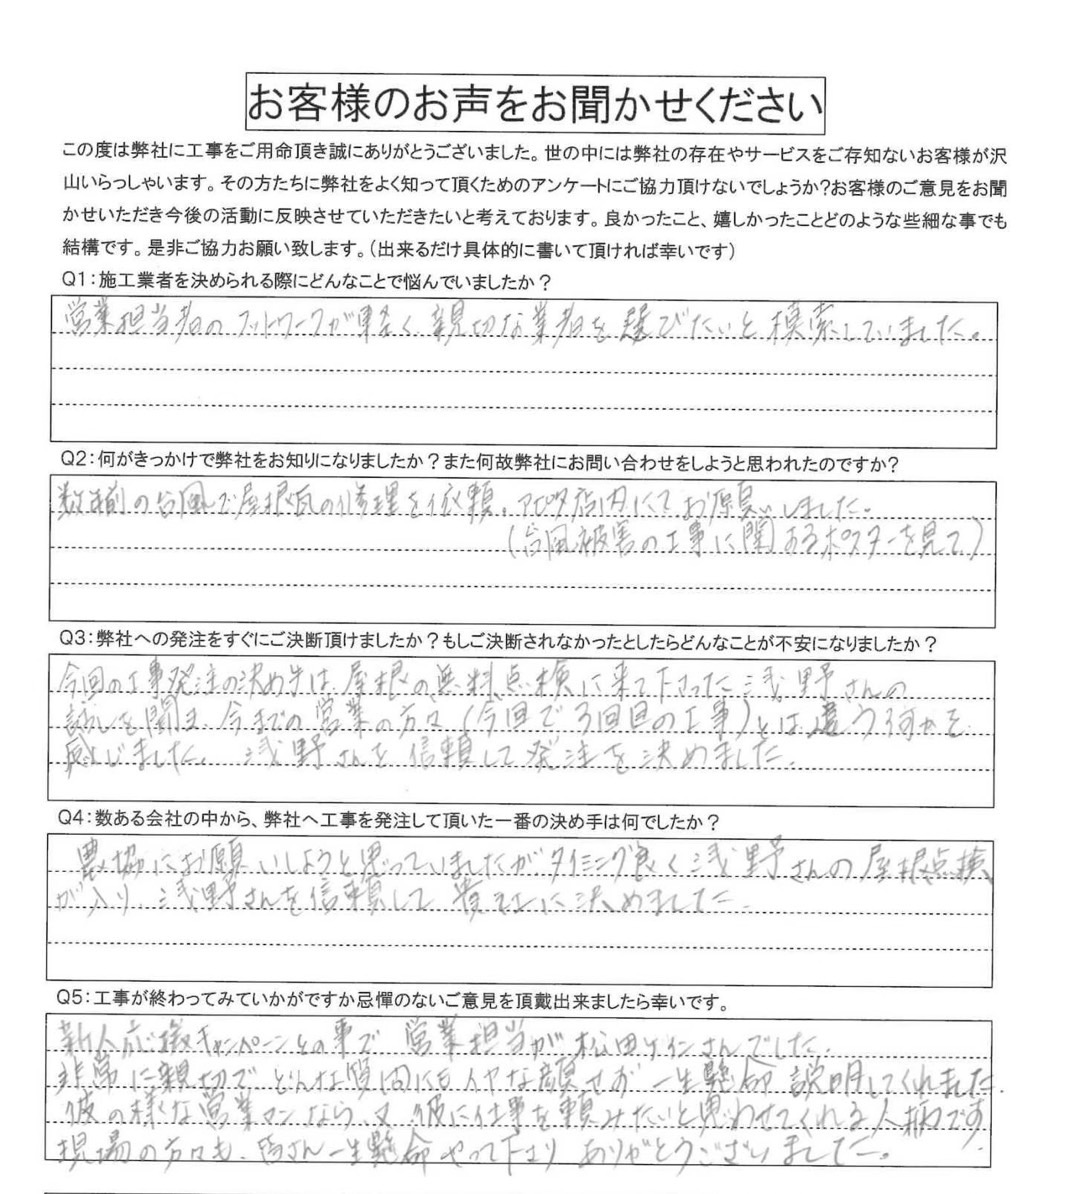 お客様のお声をお聞かせください
この度は弊社に工事をご用命頂き誠にありがとうございました。世の中には弊社の存在やサービスをご存知ないお客様が沢
山いらっしゃいます。その方たちに弊社をよく知って頂くためのアンケートにご協力頂けないでしょうか?お客様のご意見をお聞
かせいただき今後の活動に反映させていただきたいと考えております。良かったこと、嬉しかったことどのような些細な事でも
結構です。是非ご協力お願い致します。（出来るだけ具体的に書いて頂ければ幸いです）
Q1：施工業者を決められる際にどんなことで悩んでいましたか？
営業担当者のフットワークが軽く親切な業者を選びたいと模索していました。
Q2：何がきっかけで弊社をお知りになりましたか？また何故弊社にお問い合わせをしようと思われたのですか?
の台風で屋根瓦の修理を依頼。アピタ店内にてお願いしました。
（台風被害の工事に関するポスターを見て）
Q3：弊社への発注をすぐにご決断頂けましたか？もしご決断されなかったとしたらどんなことが不安になりましたか？
今回の工事発注の決め手は、屋根の無料点検に来て下さった浅野さんの
話しを聞き、今までの営業の方々（今回で3回目の工事）とは違う何かを
感じました。浅野さんを信頼して発注を決めました。
Q4：数ある会社の中から、弊社へ工事を発注して頂いた一番の決め手は何でしたか？
農協にお願いしようと思っていましたがタイミング良く浅野さんの屋根点検
が入り、浅野さんを信頼して貴社に決めました。
Q5：工事が終わってみていかがですか忌憚のないご意見を頂戴出来ましたら幸いです。
新人応援キャンペーンとの事で営業担当が松田ケインさんでした。
非常に親切でどんな質問にもイヤな顔せず一生懸命説明してくれました。
彼の様な営業マンなら、又、彼に仕事を頼みたいと思わせてくれる人柄です。
現場の方々も、皆さん一生懸命やって下さりありがとうございました。